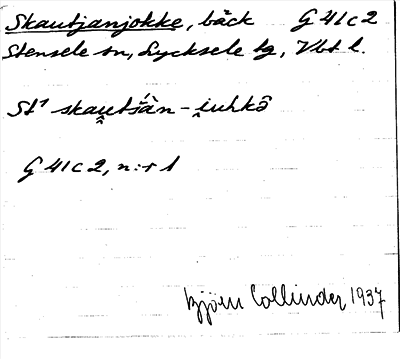 Skautjanjokke, bäck G 41 c 2
Stensele sn, Lycksele tg, Vbt l.
St¹ skau̯tšàn-i̯uhkə̑
G 41 c 2, n:r 1
Björn Collinder 1937